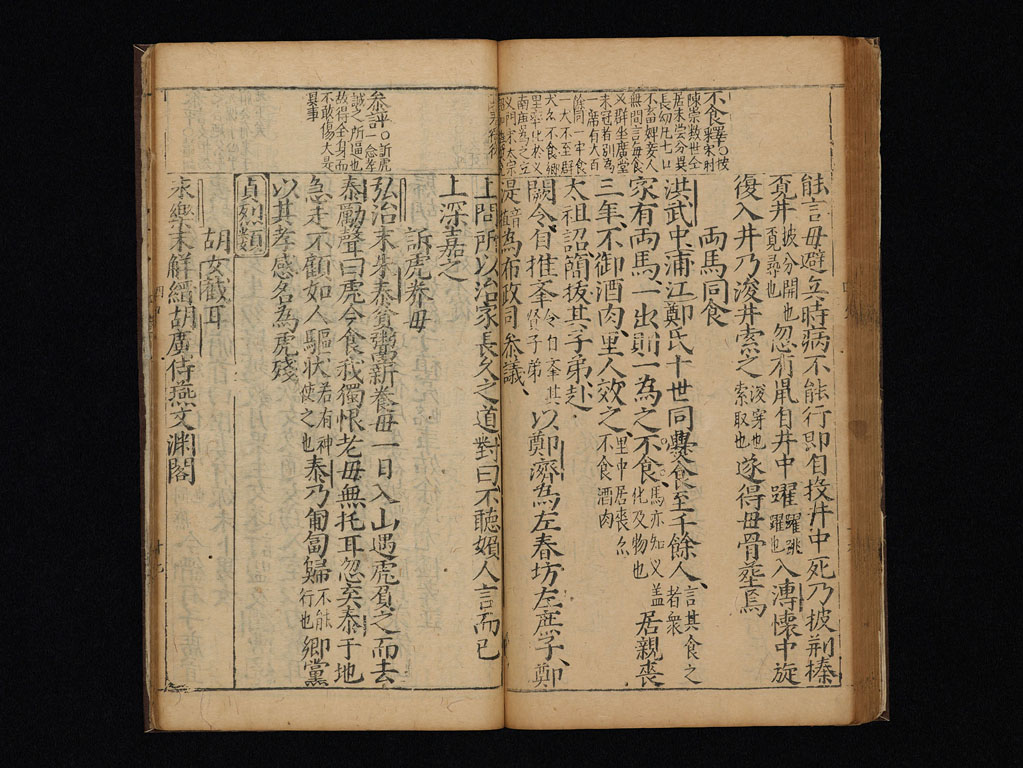 不食釋○宋時
陳崇数世全
居未嘗分異
長幼凡七口
不畜婢妾人
無間言每食
必群坐廣堂
未冠者别為
一席有犬百
餘同一牢食
一犬不至群
犬久不食鄉
里率化於义
能言母避兵時病不能行即自投井中死乃披荆榛
覔井披分開也覔尋也忽有鼠自井中躍躍跳躍也入漙懷中旋
復入井乃浚井索之浚穿也索取也遂得母骨葬焉
両馬同食
洪武中浦江鄭氏十世同㸑食至千餘人言其食之者衆
家有両馬一出則一為之不食馬亦知义盖化及物也居親喪
三年不御酒肉里人效之里中居喪亦不食酒肉
太祖詔簡抜其子弟赴
闕令自推奉令自奉其賢子弟以鄭濟為左春坊左庶子鄭
湜為布政司参議
上問所以治家長久之道對曰不聽婦人言而已
上深嘉之
叅評○訴虎
一念孝
誠之所逼也
故得全身而
不敢傷夫是
異事
訴虎养母
弘治末朱泰貧鬻薪養母一日入山遇虎負之而去
泰勵聲曰虎今食我獨恨老母無托耳忽弃泰于地
急走不顧如人驅状若有神使之也泰乃匍匐歸不能行也鄉黨
以其孝感名為虎殘
貞烈類
胡女截耳
永樂末解縉胡廣侍燕文渊閣